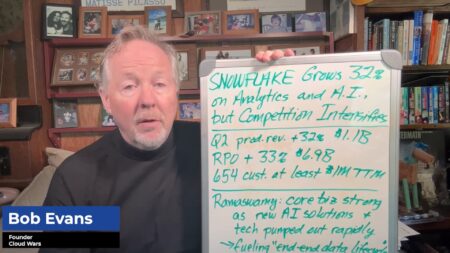 MATISSE PICASSO
SNOWFLAKE Grows 32%
on Analytics and A.I.,
but Competition Intensifies
Q2 prod. rev. +32% $1.1B
RPO + 33% $6.9B
654 cust. at least $1M TTM
Ramaswamy: core biz strong
as new AI solutions +
tech pumped out rapidly
→ fueling "end-end data lifecycle
Bob Evans
Founder
Cloud Wars